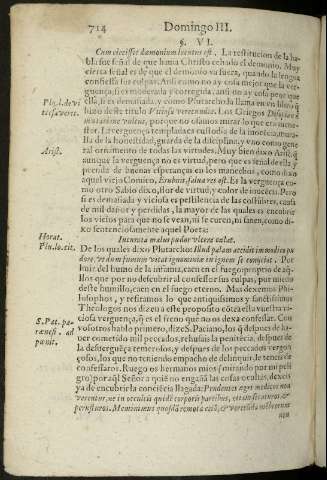 714 Domingo III.
§. VI.
Cum eiecisset dæmonium locutus est. La restitucion de la ha-
bla fue señal de que hauia Christo echado el demonio. Muy
cierta señal es de que el demonio va fuera, quando la lengua
confiessa sus culpas. Assi como no ay cosa mejor que la ver-
guença, si es moderada y corregida, assi no ay cosa peor que
ella, si es demasiada, y como Plutarcho la llama en vn libro q̃
hizo deste titulo Vitiosa verecundia. Los Griegos
porque no osamos mirar lo que nos
La verguença templada es custodia de la inocencia, mura-
lla de la honestidad, guarda de la disciplina, y vno como gene
ral ornamento de todas las virtudes. Muy bien dixo Arist. q̃
aunque la verguença no es virtud, pero que es señal della, y
prenda de buenas esperanças en los mancebos, como dixo
aquel viejo Comico, Erubuit, salua res est. Es la verguença co-
mo otro Sabio dixo, flor de virtud, y color de inocécia. Pero
si es demasiada y viciosa es pestilencia de las costumbres, causa
de mil daños y perdidas, la mayor de las quales es encubrir
los vicios para que no se vean, ni se curen, ni sanen, como di-
xo sentenciosamente aquel Poeta:
Incurata malus pudor vlcera celat.
De los quales dixo Plutarcho: Illud palam accidit immodico pu
dore, vt dum fumum vitat ignominiæ in ignem se coniiciat. Por
huir del humo de la infamia, caen en el fuego proprio de aq̃
llos que por no descubrir al confessor sus culpas, por miedo
deste humillo, caen en el fuego eterno. Mas dexemos Phi-
losophos, y refiramos lo que antiquissimos y sanctissimos
Theologos nos dizen a este proposito cótra ella vuestra ne-
cia verguença, q̃ es el freno que no os dexa confessar. Con
vosotros hablo primero, dize S. Paciano, los q̃ despues de ha-
uer cometido mil peccados, rehusais la penitécia, despues de
la desverguença temerosos, y despues de los peccados vergon
çosos, los que no teniendo empacho de delinquir, le teneis de
confessaros. Ruego os hermanos mios (mirando por mi peli
gro) por aq̃l Señor a quié no engañã las cosas ocultas, dexeis
ya de encubrir la conciécia llagada: Prudentes ægri medicos non
verentur, ne in occultis quidé corporis partibus, etiam secaturos, &
perusturos. Meminimus quosdã
Plu. l. de vi
tiosa vere.
Arist.
Horat.
Plu. lo. cit.
S. Pac. pa-
rænes. ad
pœnit.